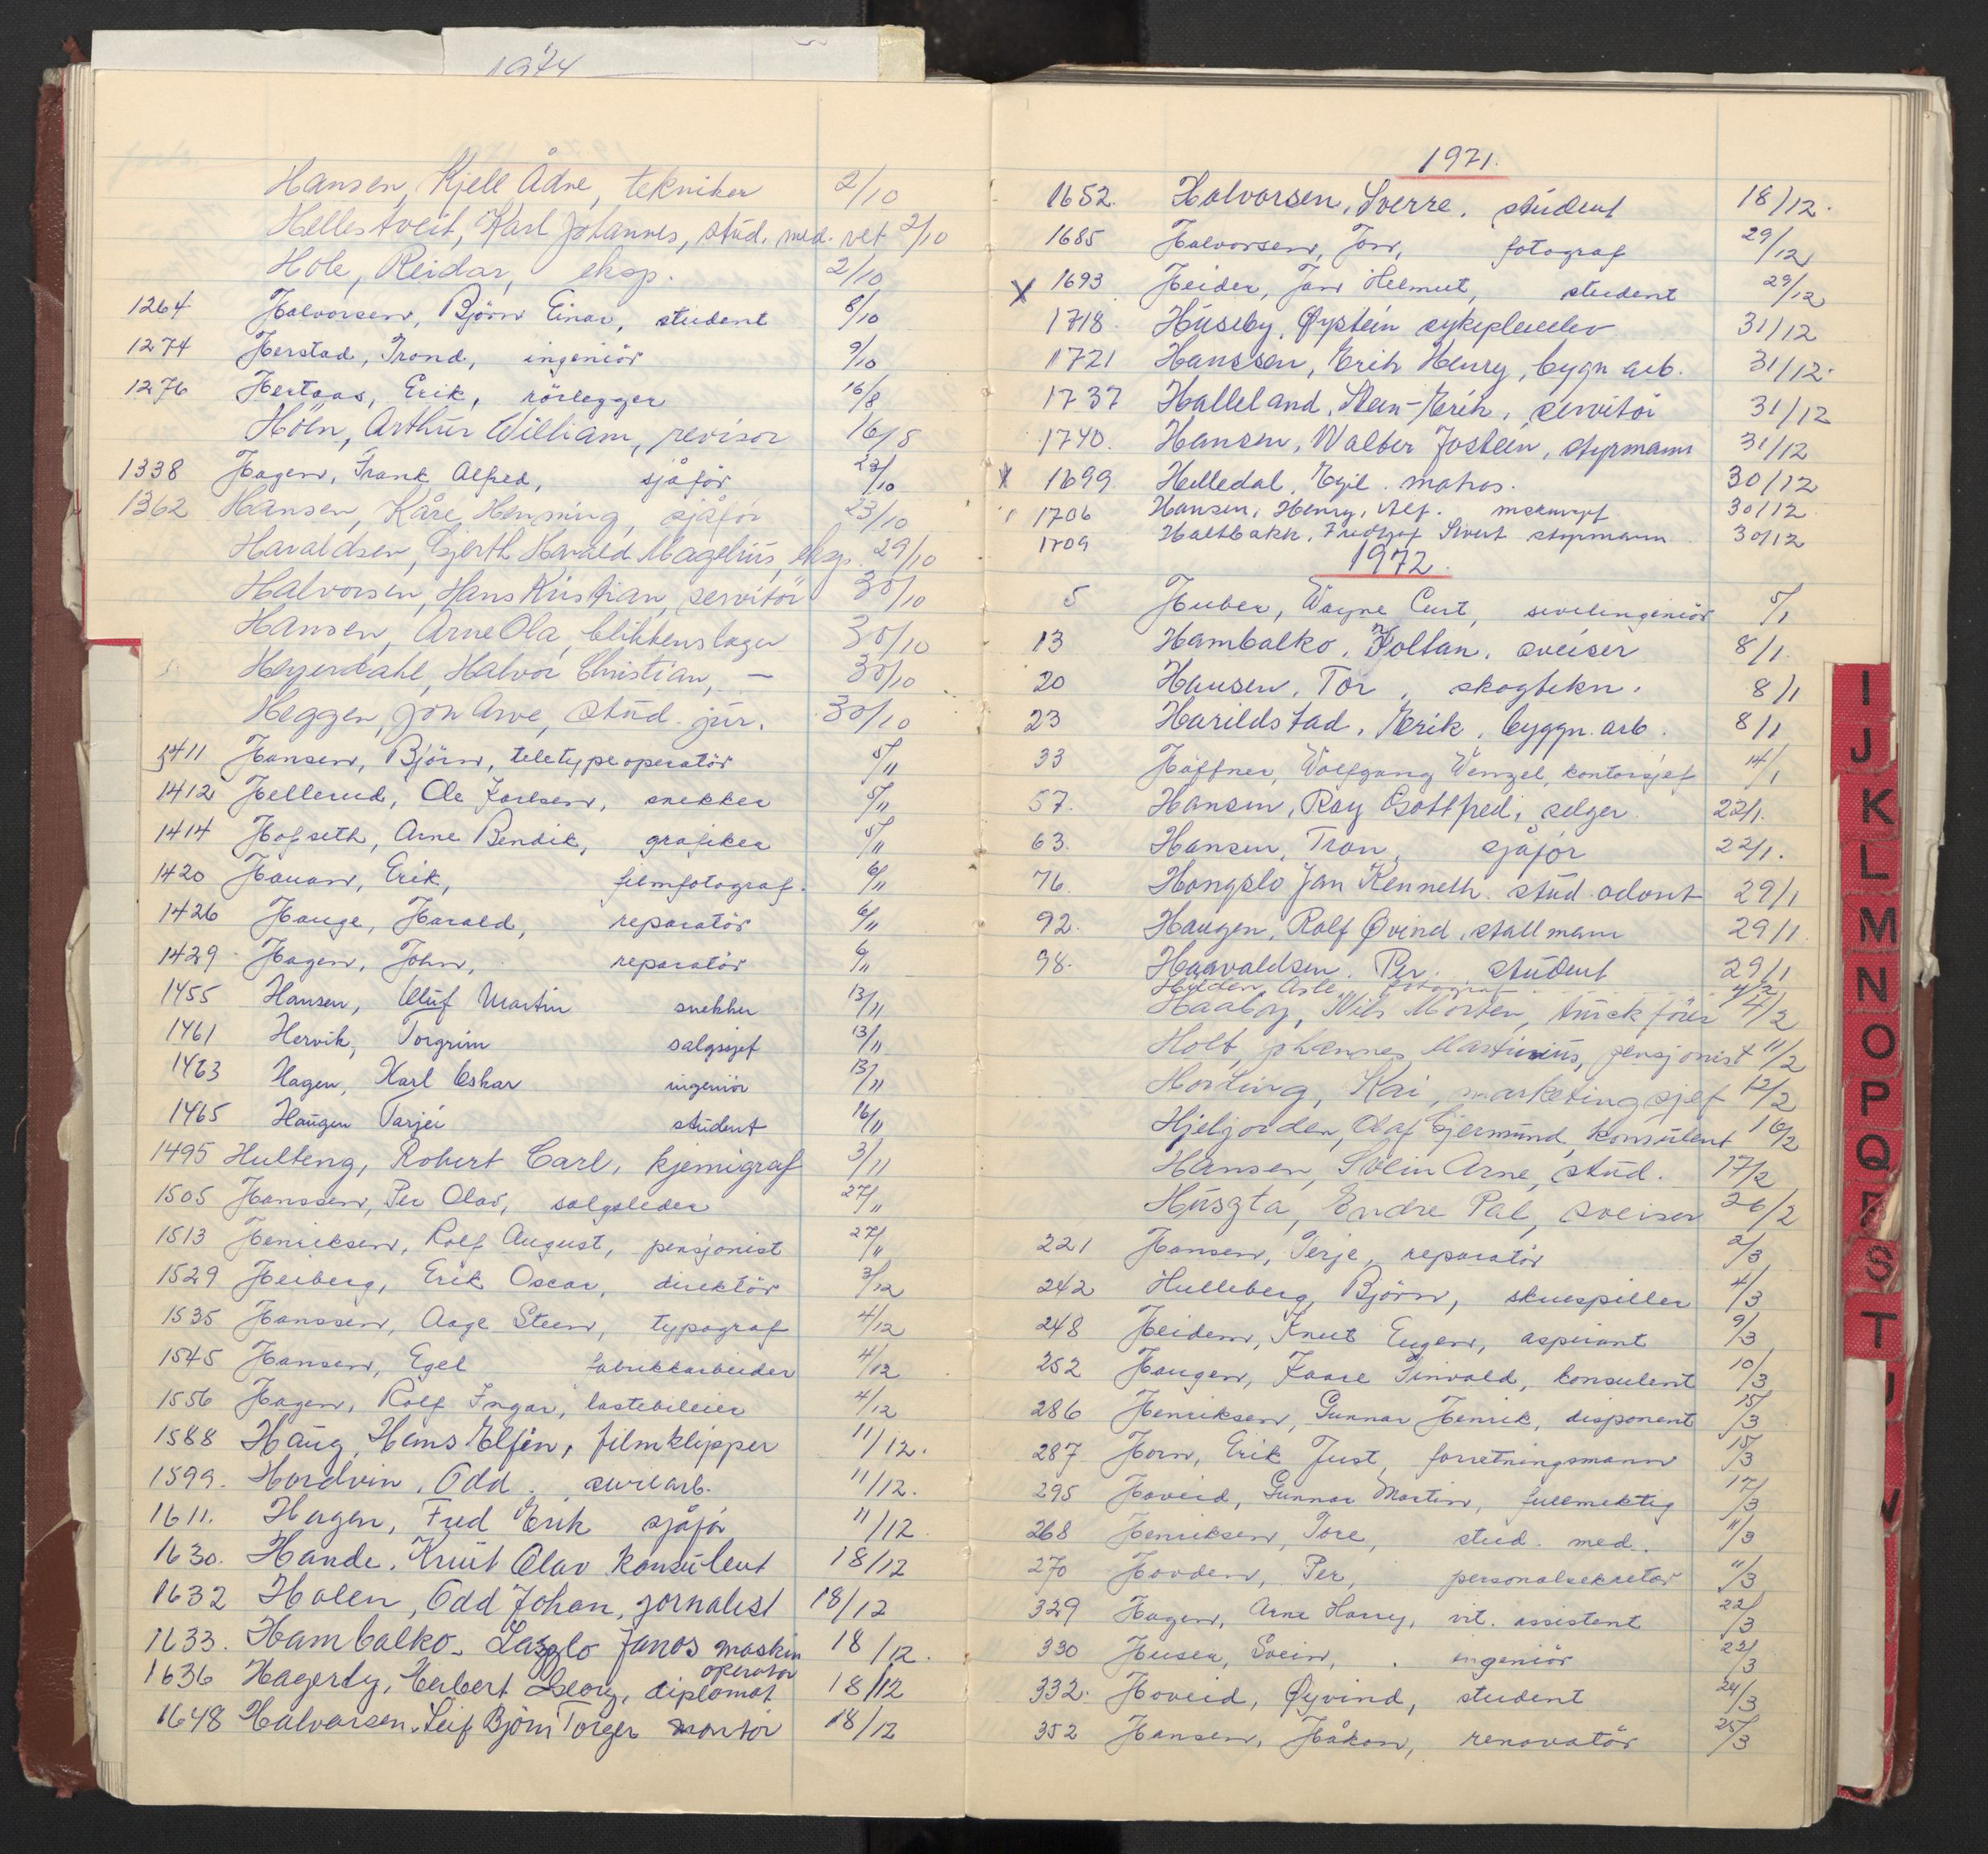 1974
Hansen, Kjell Ådne, tekniker 2/10
Hellestveit, Karl Johannes, stud. med. vet 2/10
Hole, Reidar, eksp. 2/10
1264 Halvorsen, Björn Einar, student 8/10
1274 Herstad, Trond, ingeniör 9/10
1276 Hertaas, Erik, rörlegger 16/8
Höln, Arthur William, revisor 16/8
1338 Hagen, Frank Alfred, sjåför 23/10
1362 Hansen, Kåre Henning, sjåfor 23/10
Haraldsen, Gjerth Harald Magelius, eksp. 29/10
Halvorsen, Hans Kristian, servitör 30/10
Hansen, Arne Ola, blikkenslager 30/10
Heyerdahl, Halvor Christian, — 30/10
Heggen, Jon Arve, stud. jur. 30/10
1411 Hansen, Björn, teletypeoperatör 5/11
1412 Hellerud, Ole Karlsen, snekker 5/11
1414 Hofseth, Arne Bendik, grafiker 5/11
1420 Hauan, Erik, filmfotograf. 6/11
1426 Hauge, Harald, reparatör 6/11
1429 Hagen, John, reparatör 6/11
1455 Hansen, Oluf Martin snekker 13/11
1461 Hervik, Torgrim salgssjef 13/11
1463 Hagen, Karl Oskar ingeniör 13/11
1465 Haugen Tarjei student 16/11
1495 Hulteng, Robert Carl, kjemigraf 3/11
1505 Hanssen, Per Olav, salgsleder 27/11
1513 Henriksen, Rolf August, pensjonist 27/11
1529 Heiberg, Erik Oscar, direktör 3/12
1535 Hanssen, Aage Steen, typograf 4/12
1545 Hansen, Egel fabrikkarbeider 4/12
1556 Hagen, Rolf Ingar, lastebileier 4/12
1588 Haug, Hans Elfin, filmklipper 11/12.
1599. Hordvin, Odd. sivilarb. 11/12.
1611. Hagen, Fred Erik sjåför 11/12.
1630. Hande, Knut Olav konsulent 18/12
1632 Holen, Odd Johan, jornalist 18/12
1633. Hambalko, Laszlo Janos maskin operatör 18/12.
1636 Hagerty, Herbert Georg, diplomat 18/12
1648 Halvorsen, Leif Björn Torger montör 18/12
1971.
1652. Halvorsen, Sverre, student 18/12.
1685 Halvorsen, Jon, fotograf 29/12
X 1693 Heider, Jan Helmut, student 29/12
1718. Huseby, Øystein sykepleielev 31/12
1721 Hanssen, Erik Henry, bygn arb. 31/12.
1737 Halleland, Stein-Erik, servitör 31/12
1740. Hansen, Walter Jostein, styrmann 31/12
X 1699 Helledal, Egil. matros. 30/12
1706 Hansen, Henry, Alf. 30/12
1709 Haltbakk, Fridtjof Sivert styrmann 30/12
1972.
5 Huber, Wayne Curt, sivilingeniör 5/1
13 Hambalko, Zoltan, sveiser 8/1.
20 Hansen, Tor, skogtekn. 8/1
23 Harildstad, Erik, byggn. arb. 8/1
33 Höffner, Wolfgang Wenzel, kontorsjef 14/1
57. Hansen, Roy Gottfred, selger. 22/1.
63. Hansen, Tron, sjåfór 22/1.
76. Hongslo Jan Kenneth. stud. odont 29/1
92. Haugen, Rolf Øvind, stallmann 29/1
98. Haavaldsen. Per. student 29/1
Hilden, Asle, fotograf 4/2
Haaby, Nils Morten, truckförer 4/2
Holt, Johannes Martinius, pensjonist 11/2
Horting, Kai, marketingsjef 12/2
Hjelgorden, Olaf Gjermund, konsulent 16/2
Hansen, Svein Arne, stud. 17/2
Huszta, Endre Pal, sveiser 26/2
221 Hansen, Terje, reparatör 2/3
242 Hulleberg, Björn, skuespiller 4/3
248 Heiden, Knut Eugen, aspirant 9/3
252 Haugen, Kaare Tinvald, konsulent 10/3
286 Henriksen, Gunnar Henrik, disponent 15/3
287 Horn, Erik Just, forretningsmann 15/3
295 Hoveid, Gunnar Martin, fullmektig 17/3
268 Henriksen, Tore, stud. med. 11/3
270 Hovden, Per, personalsekretær 11/3
329 Hagen, Arne Harry, vit. assistent 22/3
330 Huser, Svein, ingeniör 22/3
332. Hoveid, Øyvind, student 24/3
352 Hansen, Håkon, renovatör 25/3
I
J
K
L
M
N
O
P
Q
R
S
T